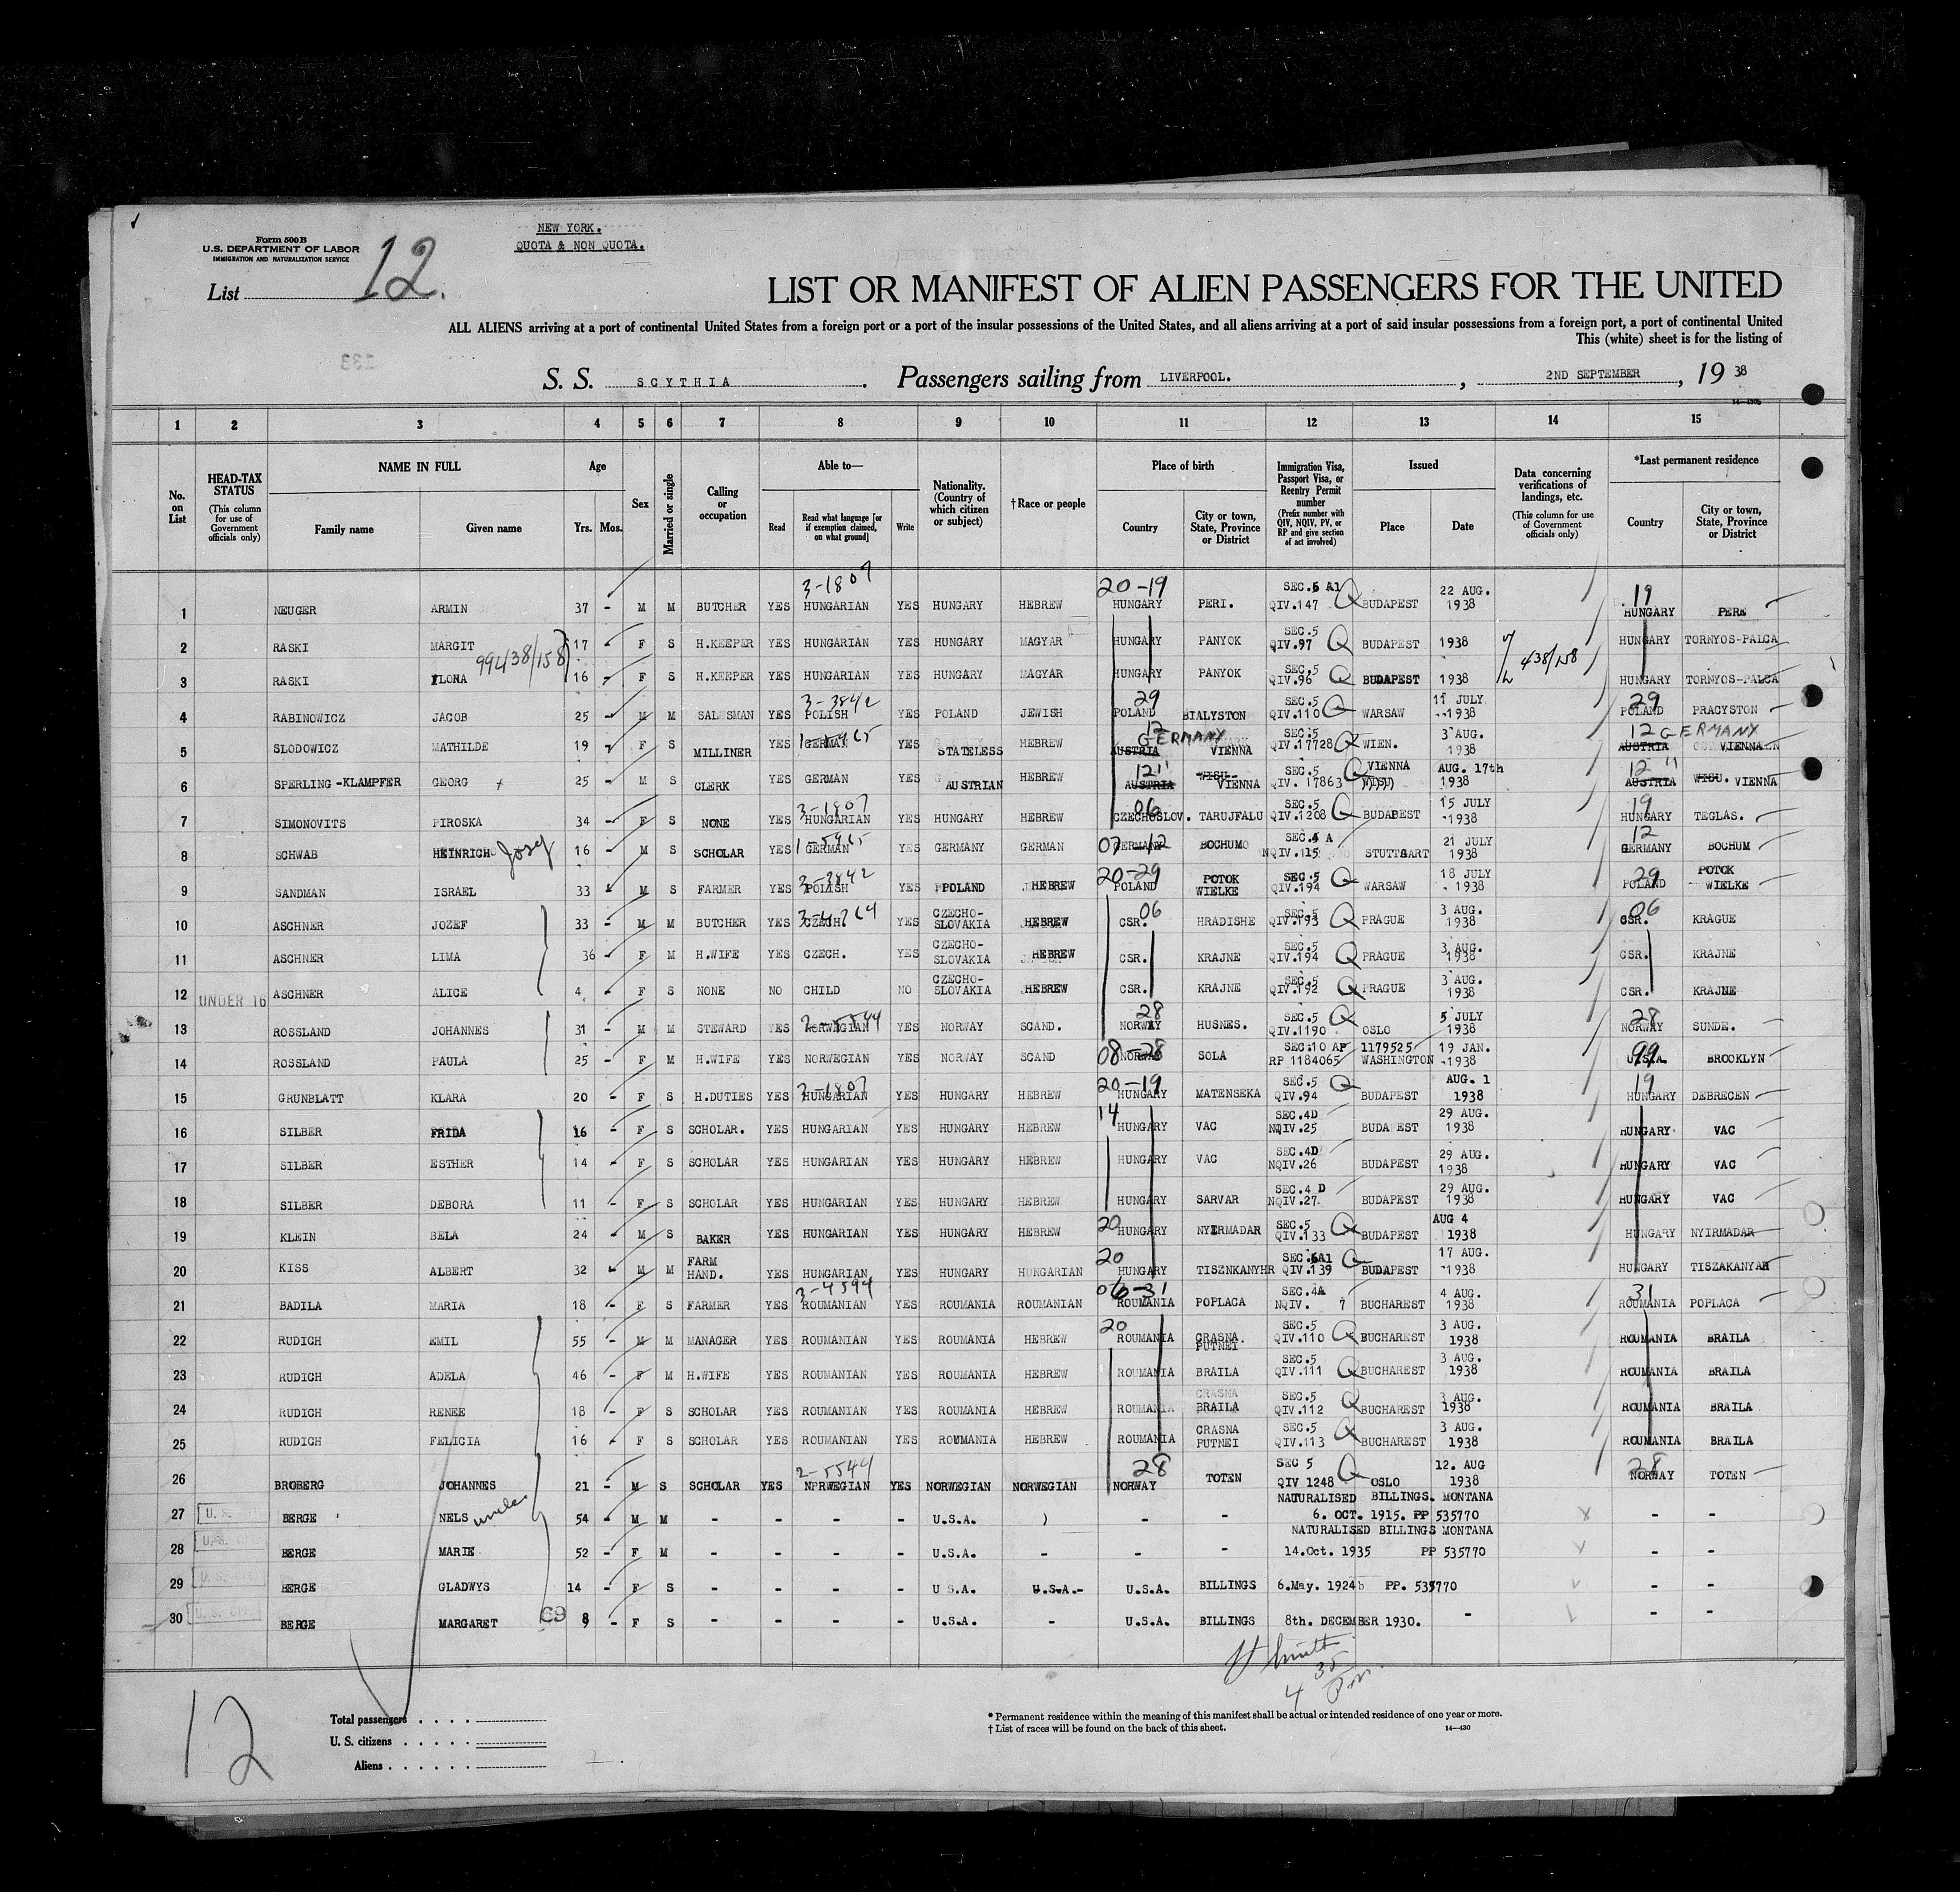 Form 500 B
U.S. DEPARTMENT OF LABOR
IMMIGRATION AND NATURALIZATION SERVICE
List 12.
NEW YORK.
QUOTA & NON QUOTA.
LIST OR MANIFEST OF ALIEN PASSENGERS FOR THE UNITED
ALL ALIENS arriving at a port of continental United States from a foreign port or a port of the insular possessions of the United States, and all aliens arriving at a port of said insular possessions from a foreign port, a port of continental United
This (white) sheet is for the listing of
S. S. SCYTHIA. Passengers sailing from LIVERPOOL. , 2ND SEPTEMBER , 19 38
14—430b
1 2 3 4 5 6 7 8 9 10 11 12 13 14 15
No. on List
HEAD-TAX STATUS (This column for use of Government officials only)
NAME IN FULL
Family name Given name
Age
Yrs. Mos.
Sex
Married or single
Calling or occupation
Able to—
Read
Read what language [or if exemption claimed, on what ground]
Write
Nationality. (Country of which citizen or subject)
†Race or people
Place of birth
Country
City or town, State, Province or District
Immigration Visa, Passport Visa, or Reentry Permit number (Prefix number with QIV, NQIV, PV, or RP and give section of act involved)
Issued
Place Date
Data concerning verifications of landings, etc. (This column for use of Government officials only)
*Last permanent residence
Country
City or town, State, Province or District
3-1807 20-19 19
1 NEUGER ARMIN 37 - M M BUTCHER YES HUNGARIAN YES HUNGARY HEBREW HUNGARY PERI. SEC.6 A1 QIV.147 Q BUDAPEST 22 AUG. 1938 HUNGARY PERE
2 RASKI MARGIT 17 F S H.KEEPER YES HUNGARIAN YES HUNGARY MAGYAR HUNGARY PANYOK SEC.5 QIV.97 Q BUDAPEST 1938 HUNGARY TORNYOS-PALCA
99438/158 438/158
3 RASKI ILONA 16 - F S H.KEEPER YES HUNGARIAN YES HUNGARY MAGYAR HUNGARY PANYOK SEC.5 QIV.96 Q BUDAPEST 1938 HUNGARY TORNYOS-PALCA
3-3842 29 29
4 RABINOWICZ JACOB 25 - M M SALESMAN YES POLISH YES POLAND JEWISH POLAND BIALYSTON SEC.5 QIV.110 Q WARSAW 11 JULY 1938 POLAND PRACYSTON
12 GERMANY 12 GERMANY
5 SLODOWICZ MATHILDE 19 - F S MILLINER YES GERMAN YES STATELESS HEBREW AUSTRIA VIENNA SEC.5 QIV.17728 Q WIEN. 3 AUG. 1938 AUSTRIA VIENNA
12 " 12 "
6 SPERLING-KLAMPFER GEORG 25 - M S CLERK YES GERMAN YES AUSTRIAN HEBREW AUSTRIA VIENNA SEC.5 QIV. 17863 Q VIENNA AUG. 17th 1938 AUSTRIA WISU. VIENNA
3-1807 06 19
7 SIMONOVITS PIROSKA 34 - F S NONE YES HUNGARIAN YES HUNGARY HEBREW CZECHOSLOV. TARUJFALU SEC.5 QIV.1208 Q BUDAPEST 15 JULY 1938 HUNGARY TEGLAS.
07-12 12
8 SCHWAB HEINRICH Josef 16 M S SCHOLAR YES GERMAN YES GERMANY GERMAN GERMANY BOCHUM SEC.4 A NQIV.115 STUTTGART 21 JULY 1938 GERMANY BOCHUM
3-3842 20-29 29
9 SANDMAN ISRAEL 33 M S FARMER YES POLISH YES POLAND HEBREW POLAND POTOK WIELKE SEC.5 QIV.194 Q WARSAW 18 JULY 1938 POLAND POTOK WIELKE
06 06
10 ASCHNER JOZEF 33 - M M BUTCHER YES CZECH. YES CZECHO-SLOVAKIA HEBREW CSR. HRADISHE SEC.5 QIV.193 Q PRAGUE 3 AUG. 1938 CSR. KRAGUE
11 ASCHNER LIMA 36 - F M H.WIFE YES CZECH. YES CZECHO-SLOVAKIA HEBREW CSR. KRAJNE SEC.5 QIV.194 Q PRAGUE 3 AUG. 1938 CSR. KRAJNE
12 UNDER 16 ASCHNER ALICE 4 - F S NONE NO CHILD NO CZECHO-SLOVAKIA HEBREW CSR. KRAJNE SEC.5 QIV.192 Q PRAGUE 3 AUG. 1938 CSR. KRAJNE
2-5544 28 28
13 ROSSLAND JOHANNES 31 - M M STEWARD YES NORWEGIAN YES NORWAY SCAND. NORWAY HUSNES. SEC.5 QIV.1190 Q OSLO 5 JULY 1938 NORWAY SUNDE.
08-28 99
14 ROSSLAND PAULA 25 - F M H.WIFE YES NORWEGIAN YES NORWAY SCAND NORWAY SOLA SEC.10 AF RP 1184065 1179525 WASHINGTON 19 JAN. 1938 U.S.A. BROOKLYN
3-1807 20-19 19
15 GRUNBLATT KLARA 20 - F S H.DUTIES YES HUNGARIAN YES HUNGARY HEBREW HUNGARY MATENSEKA SEC.5 QIV.94 Q BUDAPEST AUG. 1 1938 HUNGARY DEBRECEN
14
16 SILBER FRIDA 16 - F S SCHOLAR. YES HUNGARIAN YES HUNGARY HEBREW HUNGARY VAC SEC.4D NQIV.25 BUDAPEST 29 AUG. 1938 HUNGARY VAC
17 SILBER ESTHER 14 - F S SCHOLAR YES HUNGARIAN YES HUNGARY HEBREW HUNGARY VAC SEC.4D NQIV.26 BUDAPEST 29 AUG. 1938 HUNGARY VAC
18 SILBER DEBORA 11 - F S SCHOLAR YES HUNGARIAN YES HUNGARY HEBREW HUNGARY SARVAR SEC.4 D NQIV.27. BUDAPEST 29 AUG. 1938 HUNGARY VAC
20
19 KLEIN BELA 24 - M S BAKER YES HUNGARIAN YES HUNGARY HEBREW HUNGARY NYIRMADAR SEC.5 QIV.133 Q BUDAPEST AUG 4 1938 HUNGARY NYIRMADAR
20
20 KISS ALBERT 32 - M M FARM HAND. YES HUNGARIAN YES HUNGARY HUNGARIAN HUNGARY TISZNKANYHR SEC.6A1 QIV.139 Q BUDAPEST 17 AUG. 1938 HUNGARY TISZAKANYAR
3-4594 06-31 31
21 BADILA MARIA 18 - F S FARMER YES ROUMANIAN YES ROUMANIA ROUMANIAN ROUMANIA POPLACA SEC.4A NQIV. 7 BUCHAREST 4 AUG. 1938 ROUMANIA POPLACA
20
22 RUDICH EMIL 55 - M M MANAGER YES ROUMANIAN YES ROUMANIA HEBREW ROUMANIA CRASNA. PUTNEI SEC.5 QIV.110 Q BUCHAREST 3 AUG. 1938 ROUMANIA BRAILA
23 RUDICH ADELA 46 - F M H.WIFE YES ROUMANIAN YES ROUMANIA HEBREW ROUMANIA BRAILA SEC.5 QIV.111 Q BUCHAREST 3 AUG. 1938 ROUMANIA BRAILA
24 RUDICH RENEE 18 - F S SCHOLAR YES ROUMANIAN YES ROUMANIA HEBREW ROUMANIA CRASNA BRAILA SEC.5 QIV.112 Q BUCHAREST 3 AUG. 1938 ROUMANIA BRAILA
25 RUDICH FELICIA 16 - F S SCHOLAR YES ROUMANIAN YES ROUMANIA HEBREW ROUMANIA CRASNA PUTNEI SEC.5 QIV.113 Q BUCHAREST 3 AUG. 1938 ROUMANIA BRAILA
2-5544 28 28
26 BROBERG JOHANNES 21 - M S SCHOLAR YES NPRWEGIAN YES NORWEGIAN NORWEGIAN NORWAY TOTEN SEC 5 QIV 1248 Q OSLO 12. AUG 1938 NORWAY TOTEN
27 U.S. BERGE NELS uncle 54 - M M - - - - U.S.A. - - NATURALISED BILLINGS. MONTANA 6. OCT. 1915. PP 535770 - -
28 BERGE MARIE 52 - F M - - - - U.S.A. - - - NATURALISED BILLINGS MONTANA 14.Oct. 1935 PP 535770 - -
29 BERGE GLADWYS 14 - F S - - - - U.S.A. U.S.A.- U.S.A. BILLINGS 6.May. 1924 PP. 535770 - -
30 BERGE MARGARET 8 9 - F S - - - - U.S.A. - U.S.A. BILLINGS 8th. DECEMBER 1930. - - -
H Smith
4 35 P.m.
12
Total passengers . . . .
U. S. citizens . . . . .
Aliens . . . . . .
* Permanent residence within the meaning of this manifest shall be actual or intended residence of one year or more.
† List of races will be found on the back of this sheet.
14—430